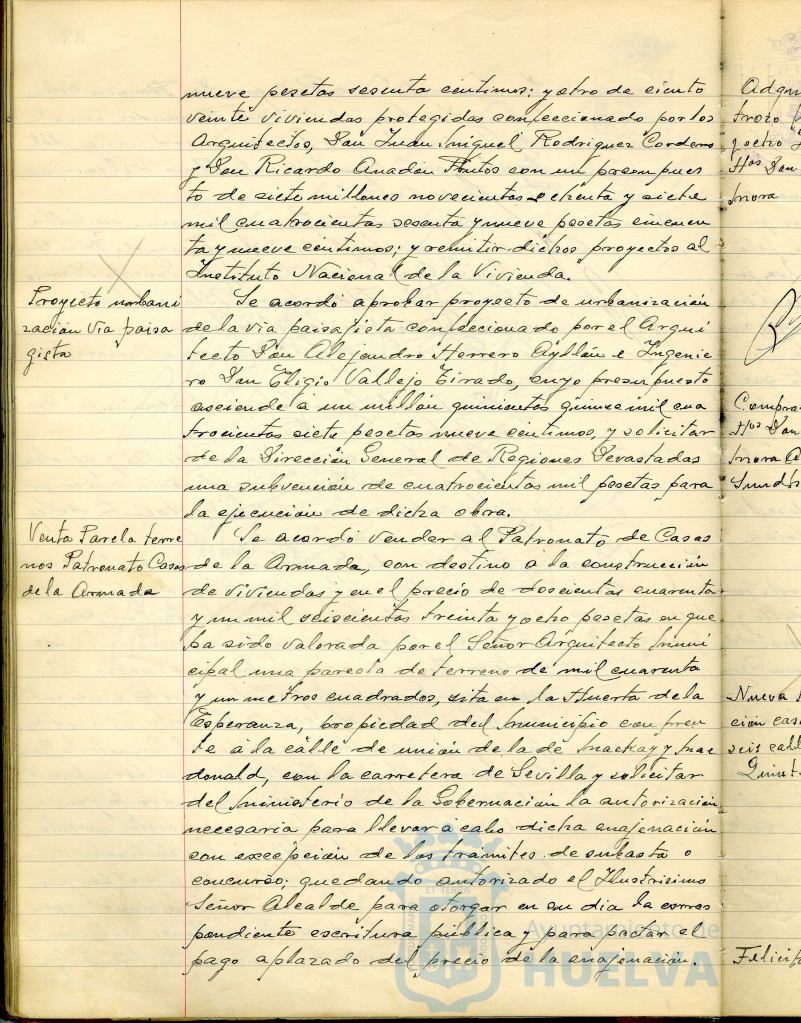 nueve pesetas sesenta centimos; y otro de ciento
veinte viviendas protegidas confeccionado por los
Arquitectos, Don Juan Miguel Rodriguez Cordero
y Don Ricardo Anadón Frutos con un presupues
to de siete millones novecientas ochenta y siete
mil cuatrocientas sesenta y nueve pesetas cincuen
ta y nueve centimos; y remitir dichos proyectos al
Instituto Nacional de la Vivienda.
Proyecto urbani
zación Via paisa
gista
Se acordó aprobar proyecto de urbanización
de la via paisajista confeccionado por el Arqui
tecto Don Alejandro Herrero Ayllón e Ingenie
ro Don Eligio Vallejo Tirado, cuyo presupuesto
asciende á un millón quinientas quince mil cua
trocientas siete pesetas nueve centimos, y solicitar
de la Dirección General de Regiones Devastadas
una subvención de cuatrocientas mil pesetas para
la ejecución de dicha obra.
Venta Parcela terre
nos Patronato Casas
de la Armada
Se acordó vender al Patronato de Casas
de la Armada, con destino á la construcción
de viviendas y en el precio de doscientas cuarenta
y un mil seiscientas treinta y ocho pesetas en que
ha sido valorada por el Señor Arquitecto Muni
cipal una parcela de terreno de mil cuarenta
y un metros cuadrados, sita en la Huerta de la
Esperanza, propiedad del Municipio con fren
te á la calle de unión de la de Mackay y Mac
donald, con la carretera de Sevilla y solicitar
del Ministerio de la Gobernación la autorización
necesaria para llevar á cabo dicha enajenación
con excepción de los trámites de subasta o
concurso; quedando autorizado el Ilustrisimo
Señor Alcalde para otorgar en su dia la corres
pondiente escritura pública y para pactar el
pago aplazado del precio de la enajenación.
Ayuntamiento de
HUELVA
Adqui
trozo
y ocho
Hos Don
Mora
Compra
Hos Don
Mora
Nueva
ción casa
seis call
Quint
Felicit